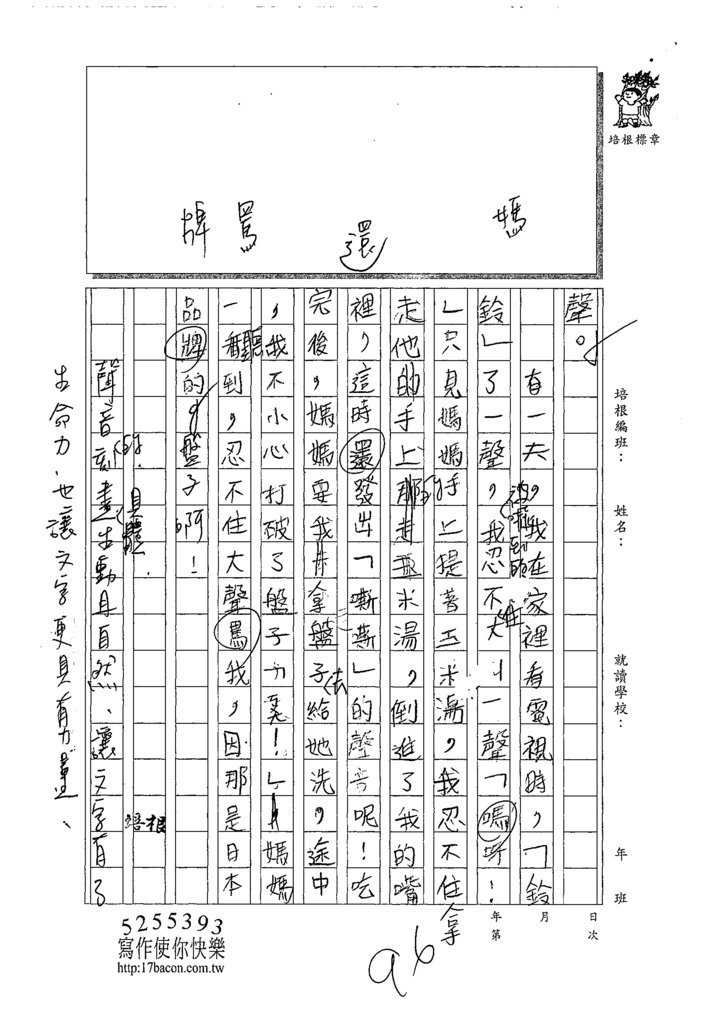 培根標章
媽
還
罵
牌
聲。
有一天,我在家裡看電視時,「鈴
鈴」了一聲,我忍不住大叫一聲「媽呀!
」只見媽媽手上提著玉米湯,我忍不住拿
走他的手上那走玉米湯,倒進了我的嘴
裡,這時還發出「嘶嘶」的聲音呢!吃
完後,媽媽要我去拿盤子給她洗,途中
,我不小心打破了盤子
一聽到,忍不住大聲罵我,因那是日本
品牌的盤子啊!
聲音刻畫生動且自然、讓文字有了
生命力、也讓文字更具有力量、
具體
培根
96
培根編班:
姓名:
就讀學校:
年 班
年 月 日
第 次
5255393
寫作使你快樂
http:17bacon.com.tw